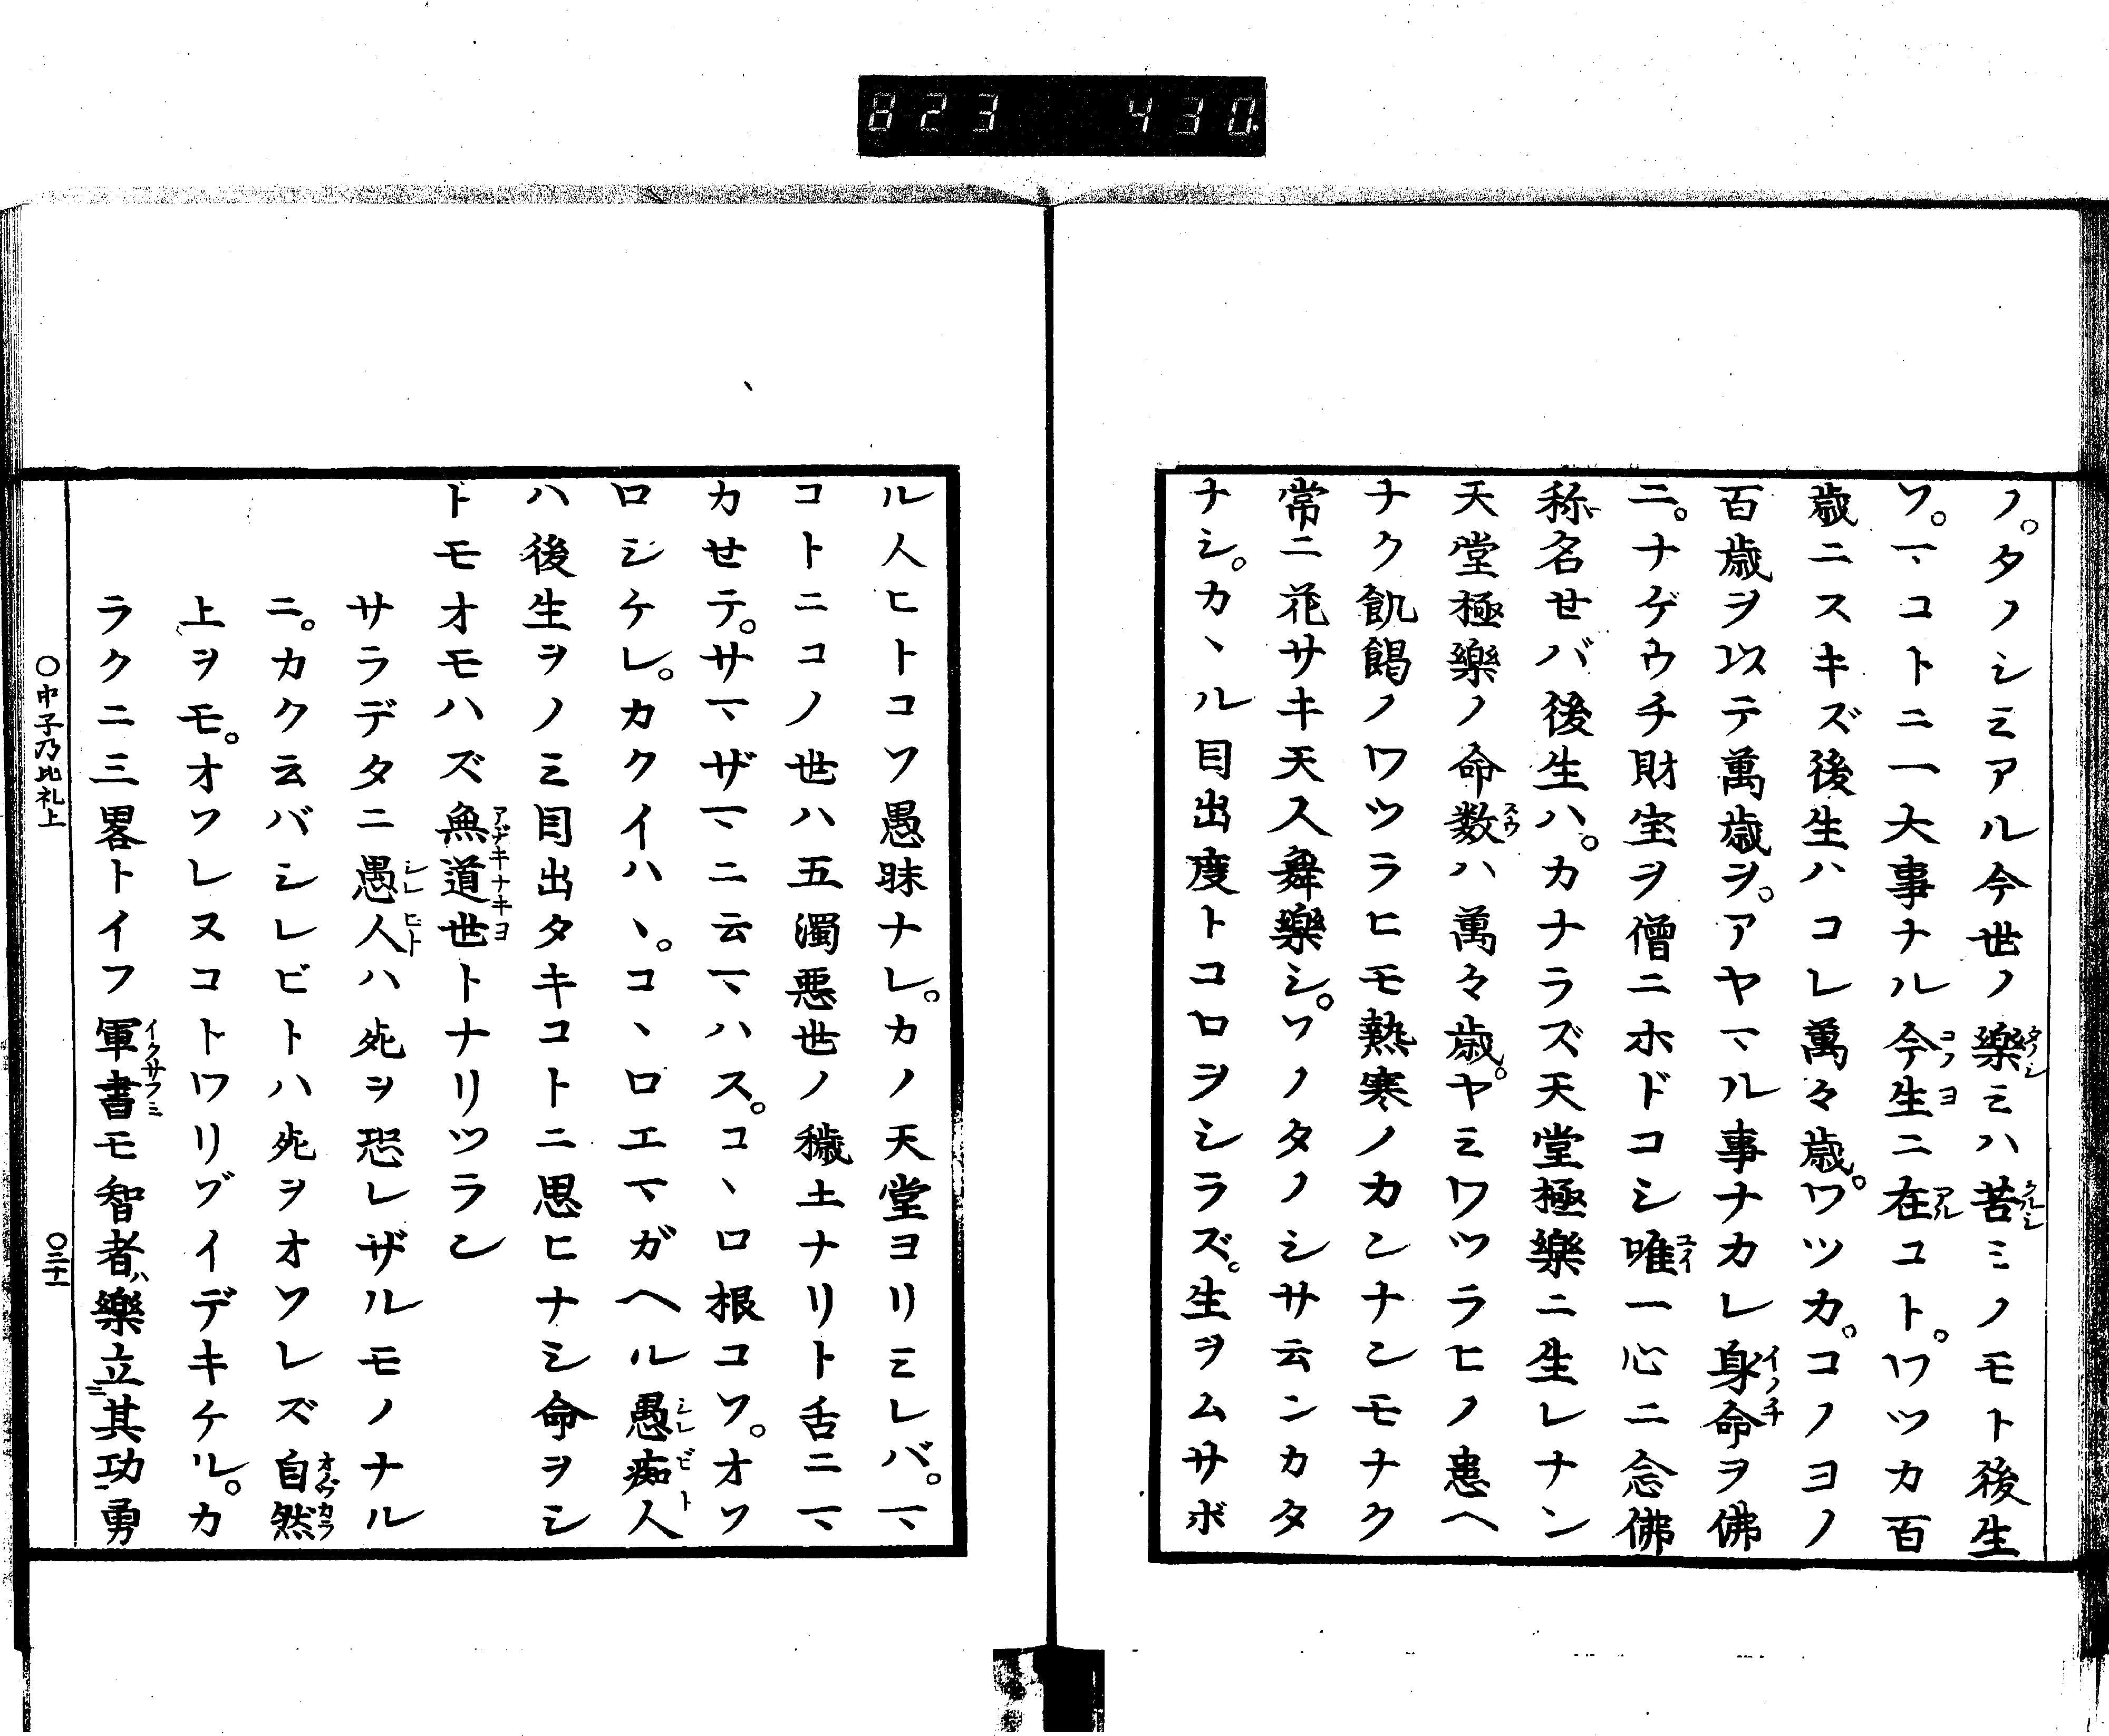 823 430.
ノ。タノシミアル今世ノ樂ミハ苦ミノモト後生
ソ。マコトニ一大事ナル今生ニ在コト。ワツカ百
歳ニスキズ後生ハコレ萬々歳。ワツカ。コノヨノ
百歳ヲ以テ萬歳ヲ。アヤマル事ナカレ身命ヲ佛
ニ。ナゲウチ財宝ヲ僧ニホドコシ唯一心ニ念佛
称名せバ後生ハ。カナラズ天堂極樂ニ生レナン
天堂極樂ノ命数ハ萬々歳。ヤミワツラヒノ患へ
ナク飢餲ノワツラヒモ熱寒ノカンナンモナク
常ニ花サキ天人舞樂シ。ソノタノシサ云ンカタ
ナシ。カヽル目出度トコロヲシラズ。生ヲムサボ
ル人ヒトコソ愚昧ナレ。カノ天堂ヨリミレバ。マ
コトニコノ世ハ五濁惡世ノ穢土ナリト舌ニマ
カせテ。サマザマニ云マハス。コヽロ根コソ。オソ
ロシケレ。カクイハヽ。コヽロエマガヘル愚痴人
ハ後生ヲノミ目出タキコトニ思ヒナシ命ヲシ
ドモオモハズ無道世トナリツラン
サラデタニ愚人ハ死ヲ恐レザルモノナル
ニ。カク云バシレビトハ死ヲオソレズ自然
上ヲモ。オソレヌコトワリゾイデキケル。カ
ラクニ三畧トイフ軍書モ智者ハ樂立其功勇
○中子乃比礼上
○三十一